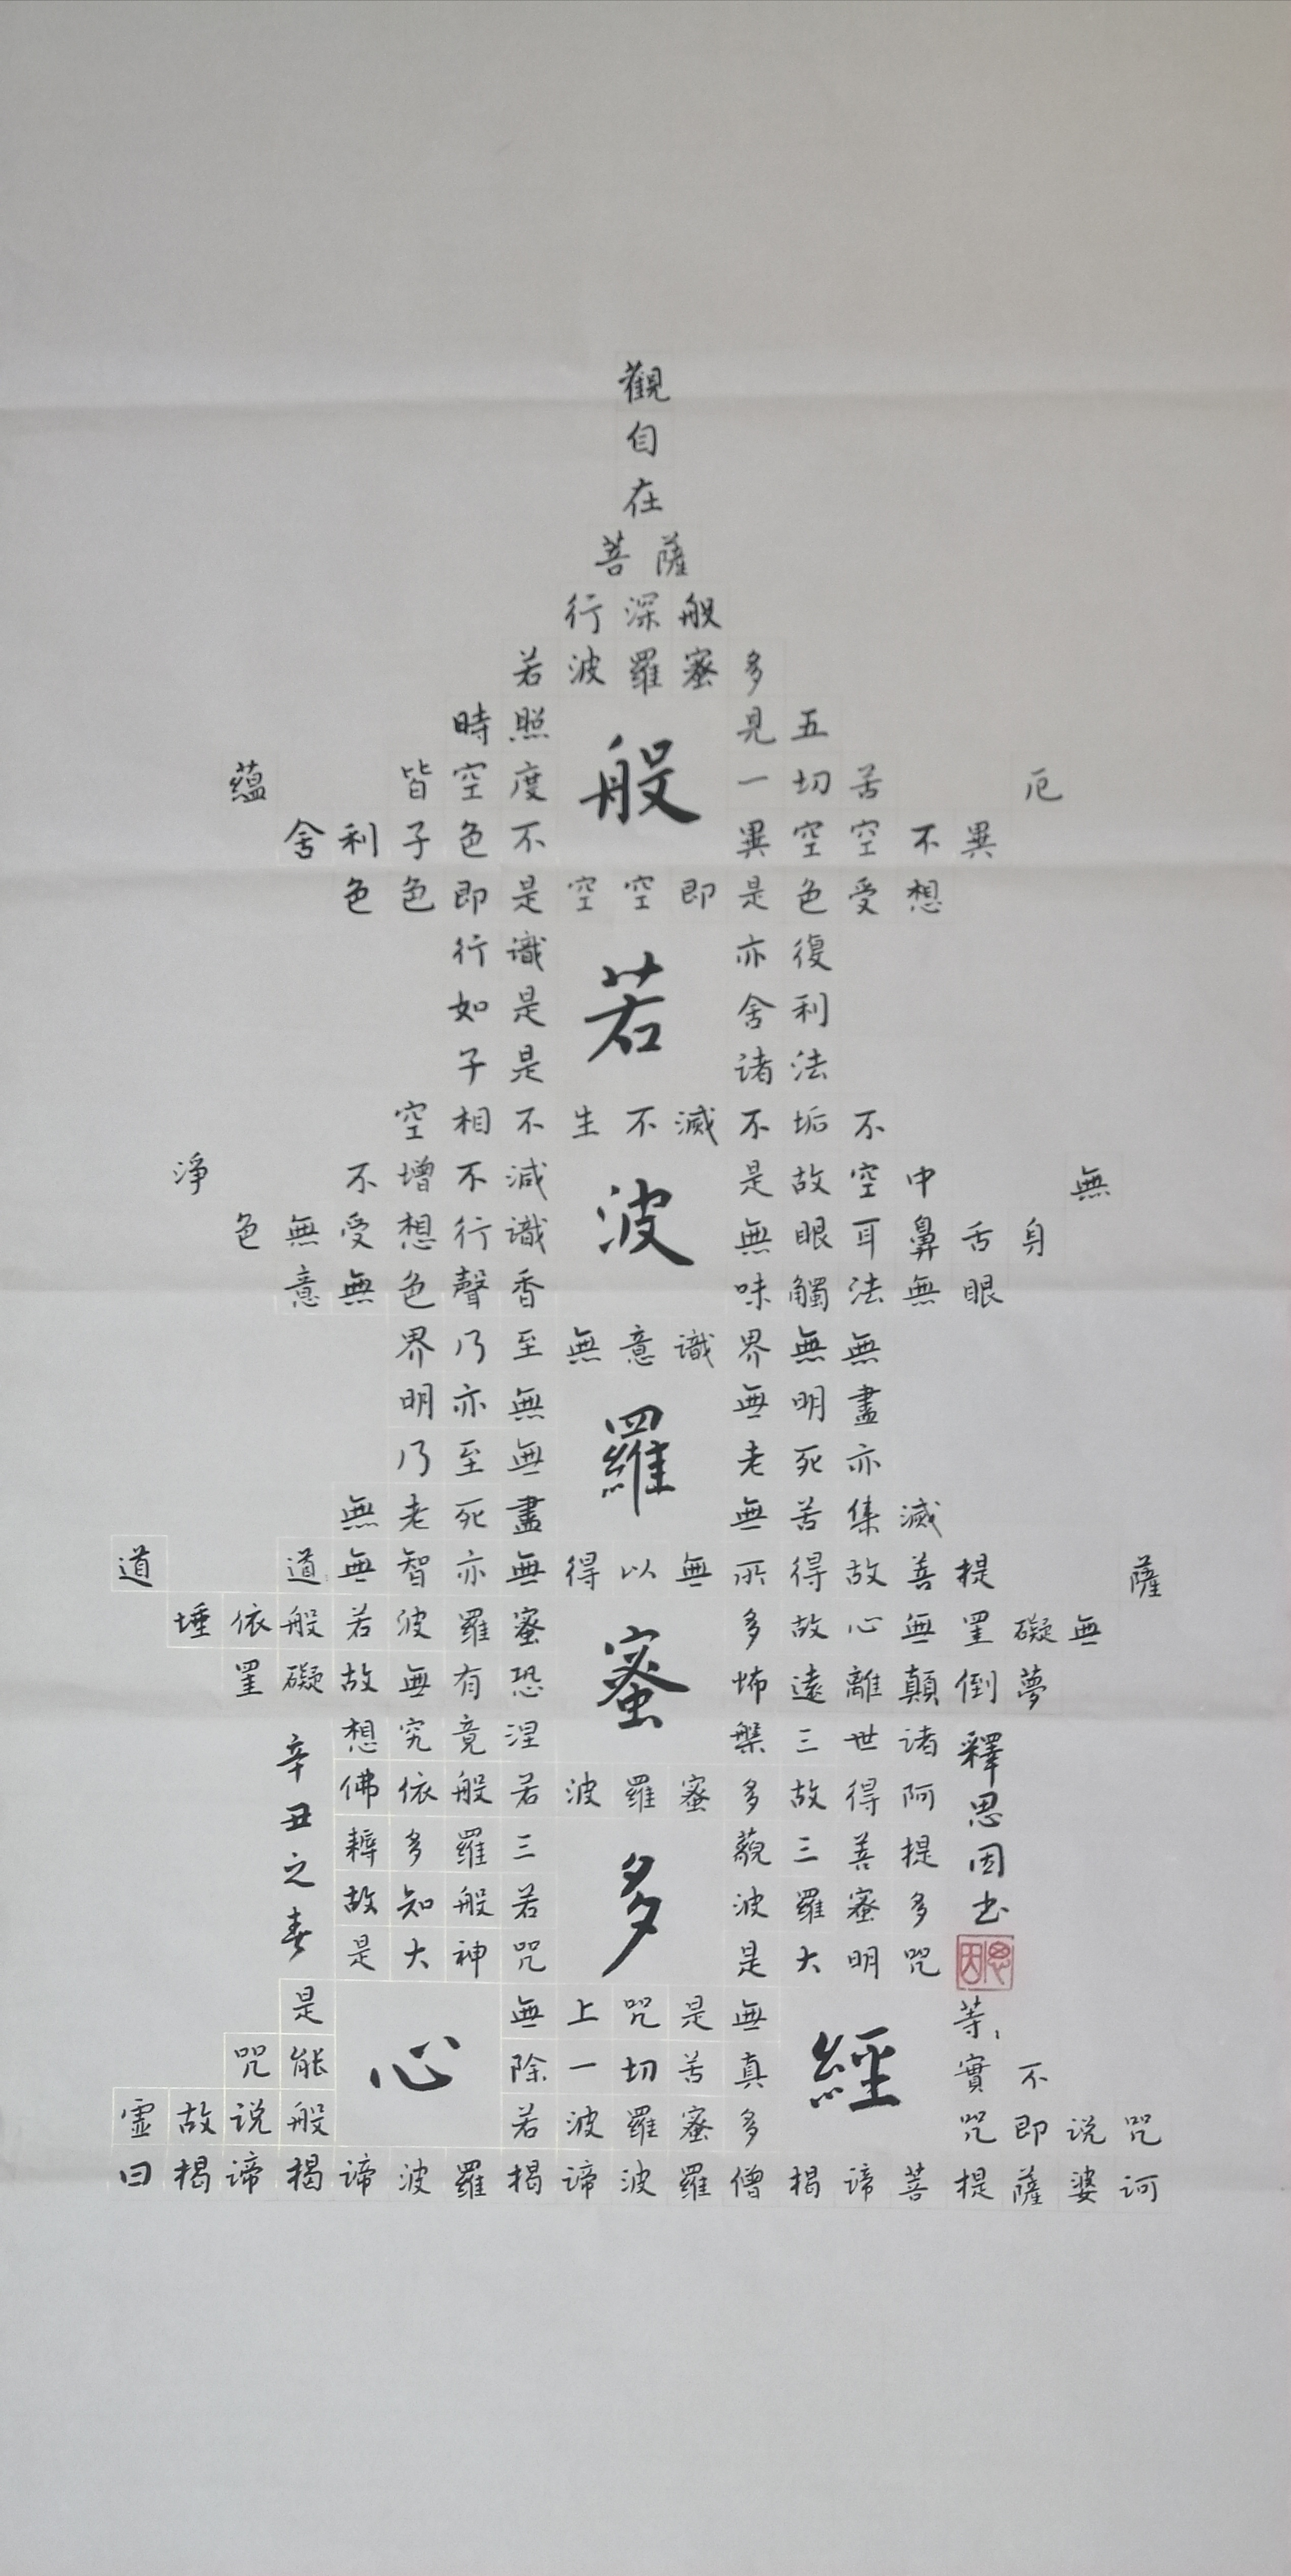 觀
自
在
菩薩
行深般
若波羅蜜多
時照見五
蘊皆空度一切苦厄
般
舍利子色不異空空不異
色色即是空空即是色受想
行識亦復
如是舍利
若
子是諸法
空相不生不滅不垢不
淨不增不減是故空中無
波
色無受想行識無眼耳鼻舌身
意無色聲香味觸法無眼
界乃至無意識界無無
明亦無無明盡
羅
乃至無老死亦
無老死盡無苦集滅
道道無智亦無得以無所得故菩提薩
埵依般若波羅蜜多故心無罣礙無
蜜
罣礙故無有恐怖遠離顛倒夢
想究竟涅槃三世諸
佛依般若波羅蜜多故得阿
耨多羅三藐三菩提
多
故知般若波羅蜜多
是大神咒是大明咒
是無上咒是無等、
咒能除一切苦真實不
心經
虛故說般若波羅蜜多咒即說咒
曰揭諦揭諦波羅揭諦波羅僧揭諦菩提薩婆訶
辛丑之春
釋思因書
思因